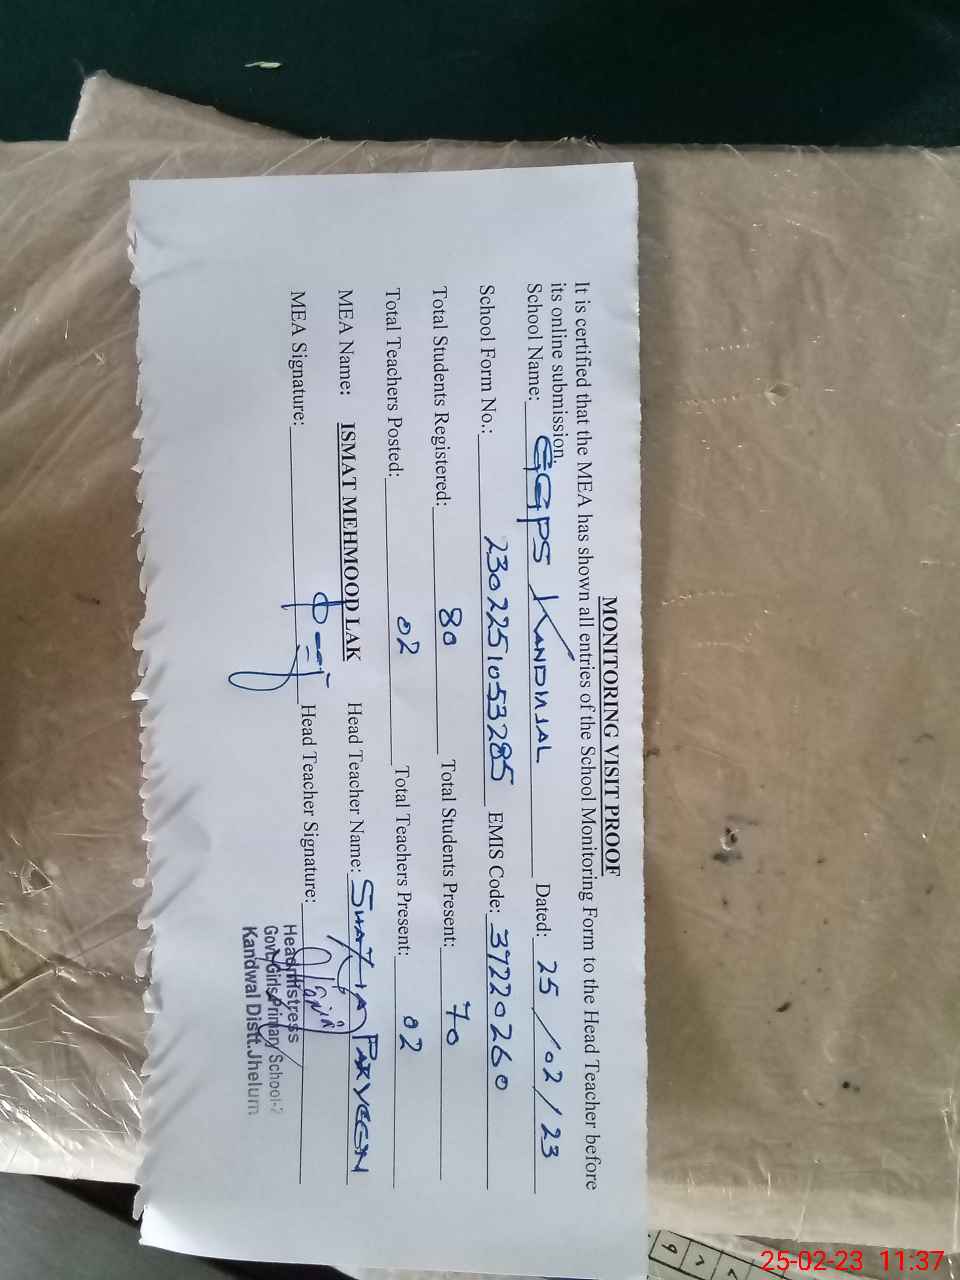 MONITORING VISIT PROOF
It is certified that the MEA has shown all entries of the School Monitoring Form to the Head Teacher before
its online submission.
School Name: GGPS KANDWAL Dated: 25/02/23
School Form No.: 2302251053285 EMIS Code: 37220260
Total Students Registered: 80 Total Students Present: 70
Total Teachers Posted: 02 Total Teachers Present: 02
MEA Name: ISMAT MEHMOOD LAK Head Teacher Name: SHAZIA PARVEEN
MEA Signature: Head Teacher Signature:
Headmistress
Govt. Girls Primary School-2
Kandwal Distt. Jhelum
25-02-23 11:37